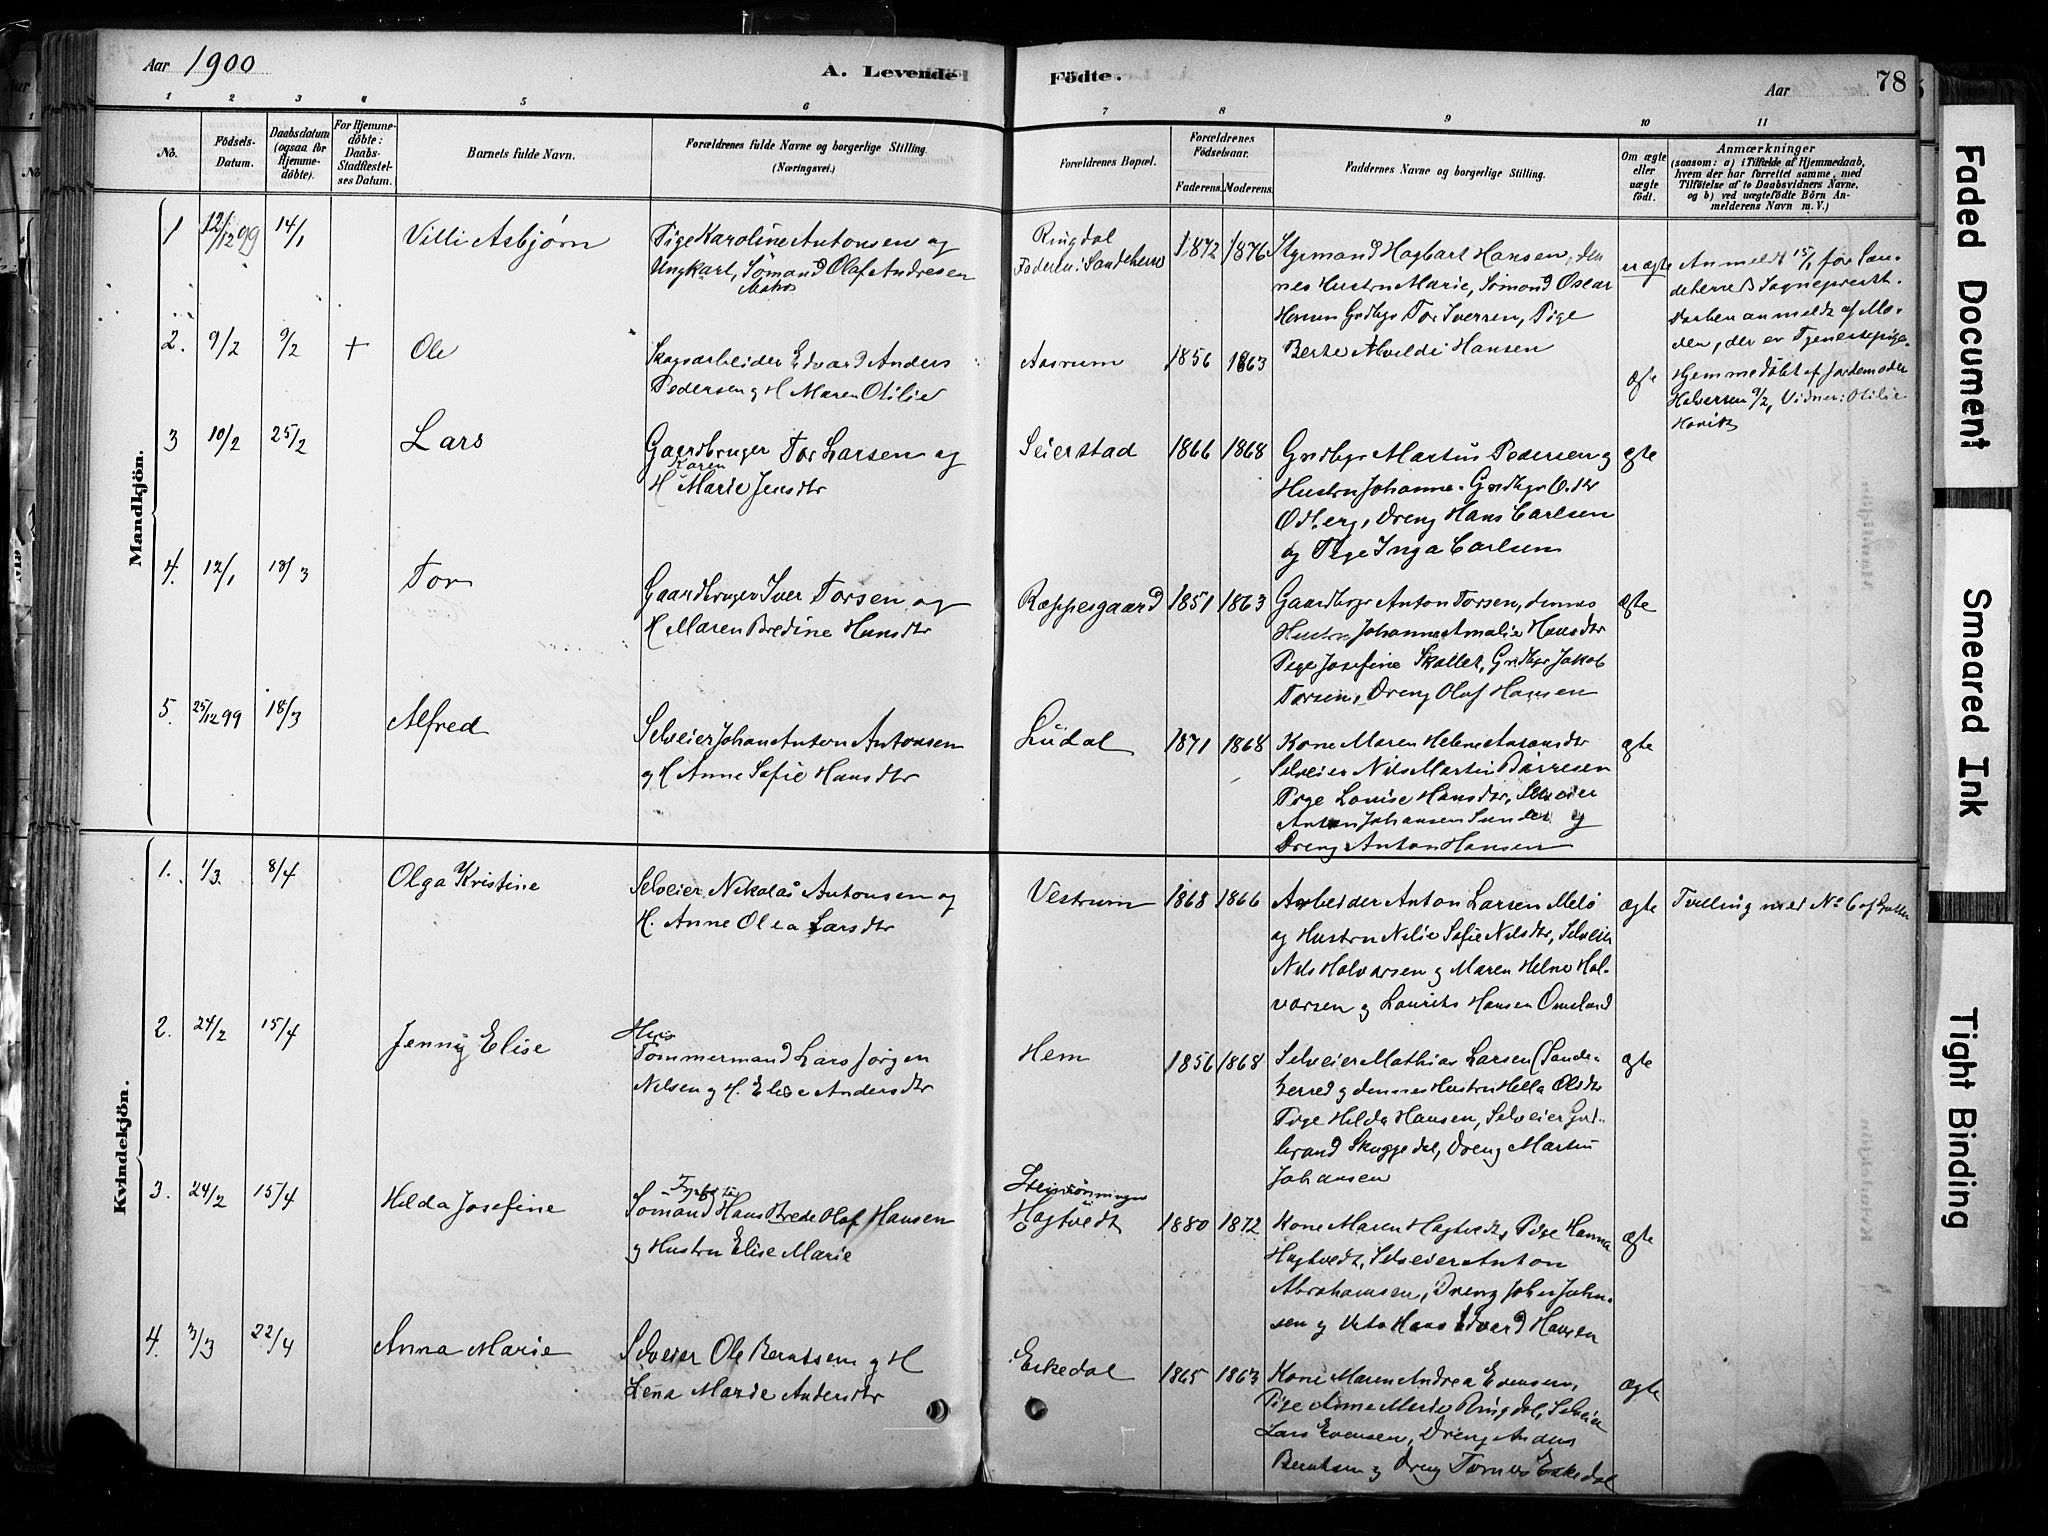 Aar 1900
A. Levende Födte.
Aar
78
1 2 3 4 5 6 7 8 9 10 11
No.
Födsels-Datum.
Daabsdatum (ogsaa for Hjemme-döbte).
For Hjemme-döbte: Daabs-Stadfæstel-ses Datum.
Barnets fulde Navn.
Forældrenes fulde Navne og borgerlige Stilling. (Næringsvei.)
Forældrenes Bopæl.
Forældrenes Födselsaar.
Faderens. Moderens.
Faddernes Navne og borgerlige Stilling.
Om ægte eller uægte födt.
Anmærkninger
(saasom: a) i Tilfælde af Hjemmedaab,
hvem der har forrettet samme, med
Tilföielse af to Daabsvidners Navne,
og b) ved uægtefödte Börn An-
melderens Navn m. V.)
Mandkjön.
1 12/12 99 14/1 Villi Asbjørn
Pige Karoline Antonsen og
Ungkarl, Sømand Olaf Andresen
Matros
Ringdal
Faderen i Sandeherred
1872 1876
Styrmand Hagbart Hansen, den
nes Hustru Marie, Sømand Oscar
Hansen Grdbgr Tor Iversen, Pige
Berte Alvilde Hansen
uægte
Anmeldt 15/1 for San-
deherreds Sogneprest.
Daaben anmeldt af Mo-
deren, der er Tjenestepige.
2. 9/2 9/2 + Ole
Skogsarbeider Edvard Anders
Pedersen og H Maren Otilie
Aasrum 1856 1863
ægte
Hjemmedøbt af Jordemoder
Halversen 9/2, Vidner: Otilie
3 10/2 25/2 Lars
Gaardbruger Tor Larsen og
Karen
H Marie Jensdtr
Seierstad 1866 1868
Grdbgr Martin Pedersen og
Hustru Johanne. Grdbgr
Odberg, Dreng Hans Carlsen
og Pige Inga Carlsen
ægte
4. 12/1 18/3 Tor
Gaardbruger Iver Torsen og
H Maren Bredine Hansdtr
Ræppesgaard 1851 1863
Gaardbgr Anton Torsen, dennes
Hustru Johanne Amalie Hansdtr
Pige Josefine Skallet, Grdbgr Jakob
Torsen, Dreng Olaf Hansen
ægte
5. 25/12 99 18/3 Alfred
Selveier Johan Anton Antonsen
og H Anne Sofie Hansdtr
1871 1868
Kone Maren Helene Antonsdtr
Selveier Nils Martin
Pige Louise Hansdtr, Selveier
Anton Johansen og
Dreng Anton Hansen
ægte
Kvindekjön.
1. 1/3. 8/4 Olga Kristine
Selveier Nikolai Antonsen og
H. Anne Olea Larsdtr
Vestrum 1868 1866
Arbeider Anton Larsen Melø
og Hustru Nilie Sofie Nilsdtr, Selveier
Nils Halvorsen og Maren Helene Hal-
vorsen og Laurits Hansen Omsland
ægte
Tvilling med No 6 af Gutter
2. 24/2 15/4 Jenny Elise
Hus
Tømmermand Lars Jørgen
Nilsen og H. Elise Andersdtr
Hem 1856 1868
Selveier Mathias Larsen (Sande-
herred og dennes Hustru Hella Olsdtr
Pige Hilda Hansen, Selveier Gul-
brand Skuggedal, Dreng Martin
Johansen
ægte
3. 24/2 15/4 Hilda Josefine
Sømand Hans Brede Olaf Hansen
og Hustru Elise Marie
Hagtvedt 1880 1872
Kone Maren Hagtvedt, Pige Hanna
Hagtvedt, Selveier Anton
Abrahamsen, Dreng Johan John-
sen og Hans Edvard Hansen
ægte
4. 3/3 22/4 Anna Marie
Selveier Ole Berntsen og H
Lena Marie Andersdtr
Eskedal 1865 1863
Kone Maren Andrea Evensen,
Pige Anne Marie Ringdal, Selveier
Lars Evensen, Dreng Anders
Berntsen og Dreng Eskedal
ægte
Faded Document
Smeared Ink
Tight Binding